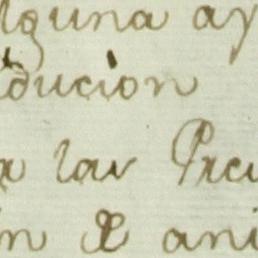 lguna ay
ducion
a las Preu
n & ani